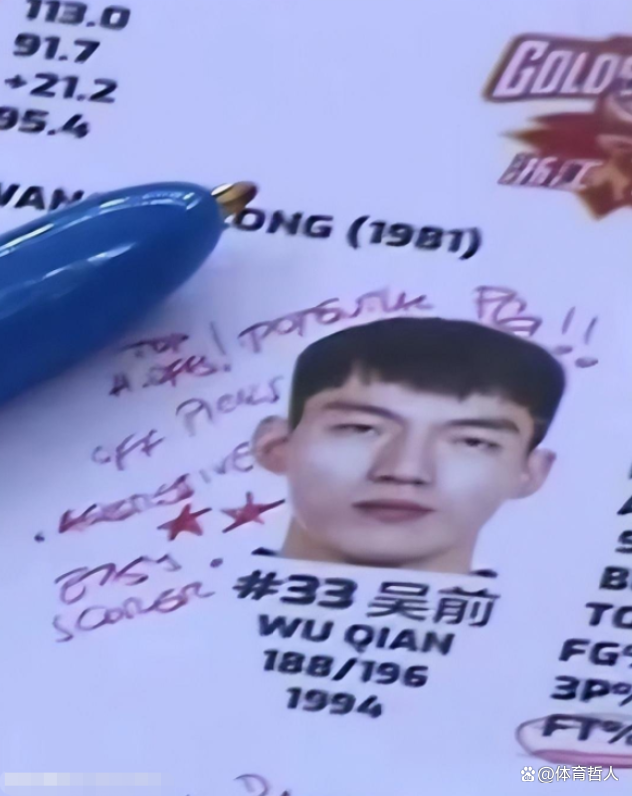 113.0
91.7
+21.2
95.4
GOLD
浙江
ONG (1981)
TOP POTENTIAL PG!!
OFF PICKS
AGGRESSIVE
EASY
SCORER
#33 吴前
WU QIAN
188/196
1994
TO
FG%
3P%
FT%
@体育哲人